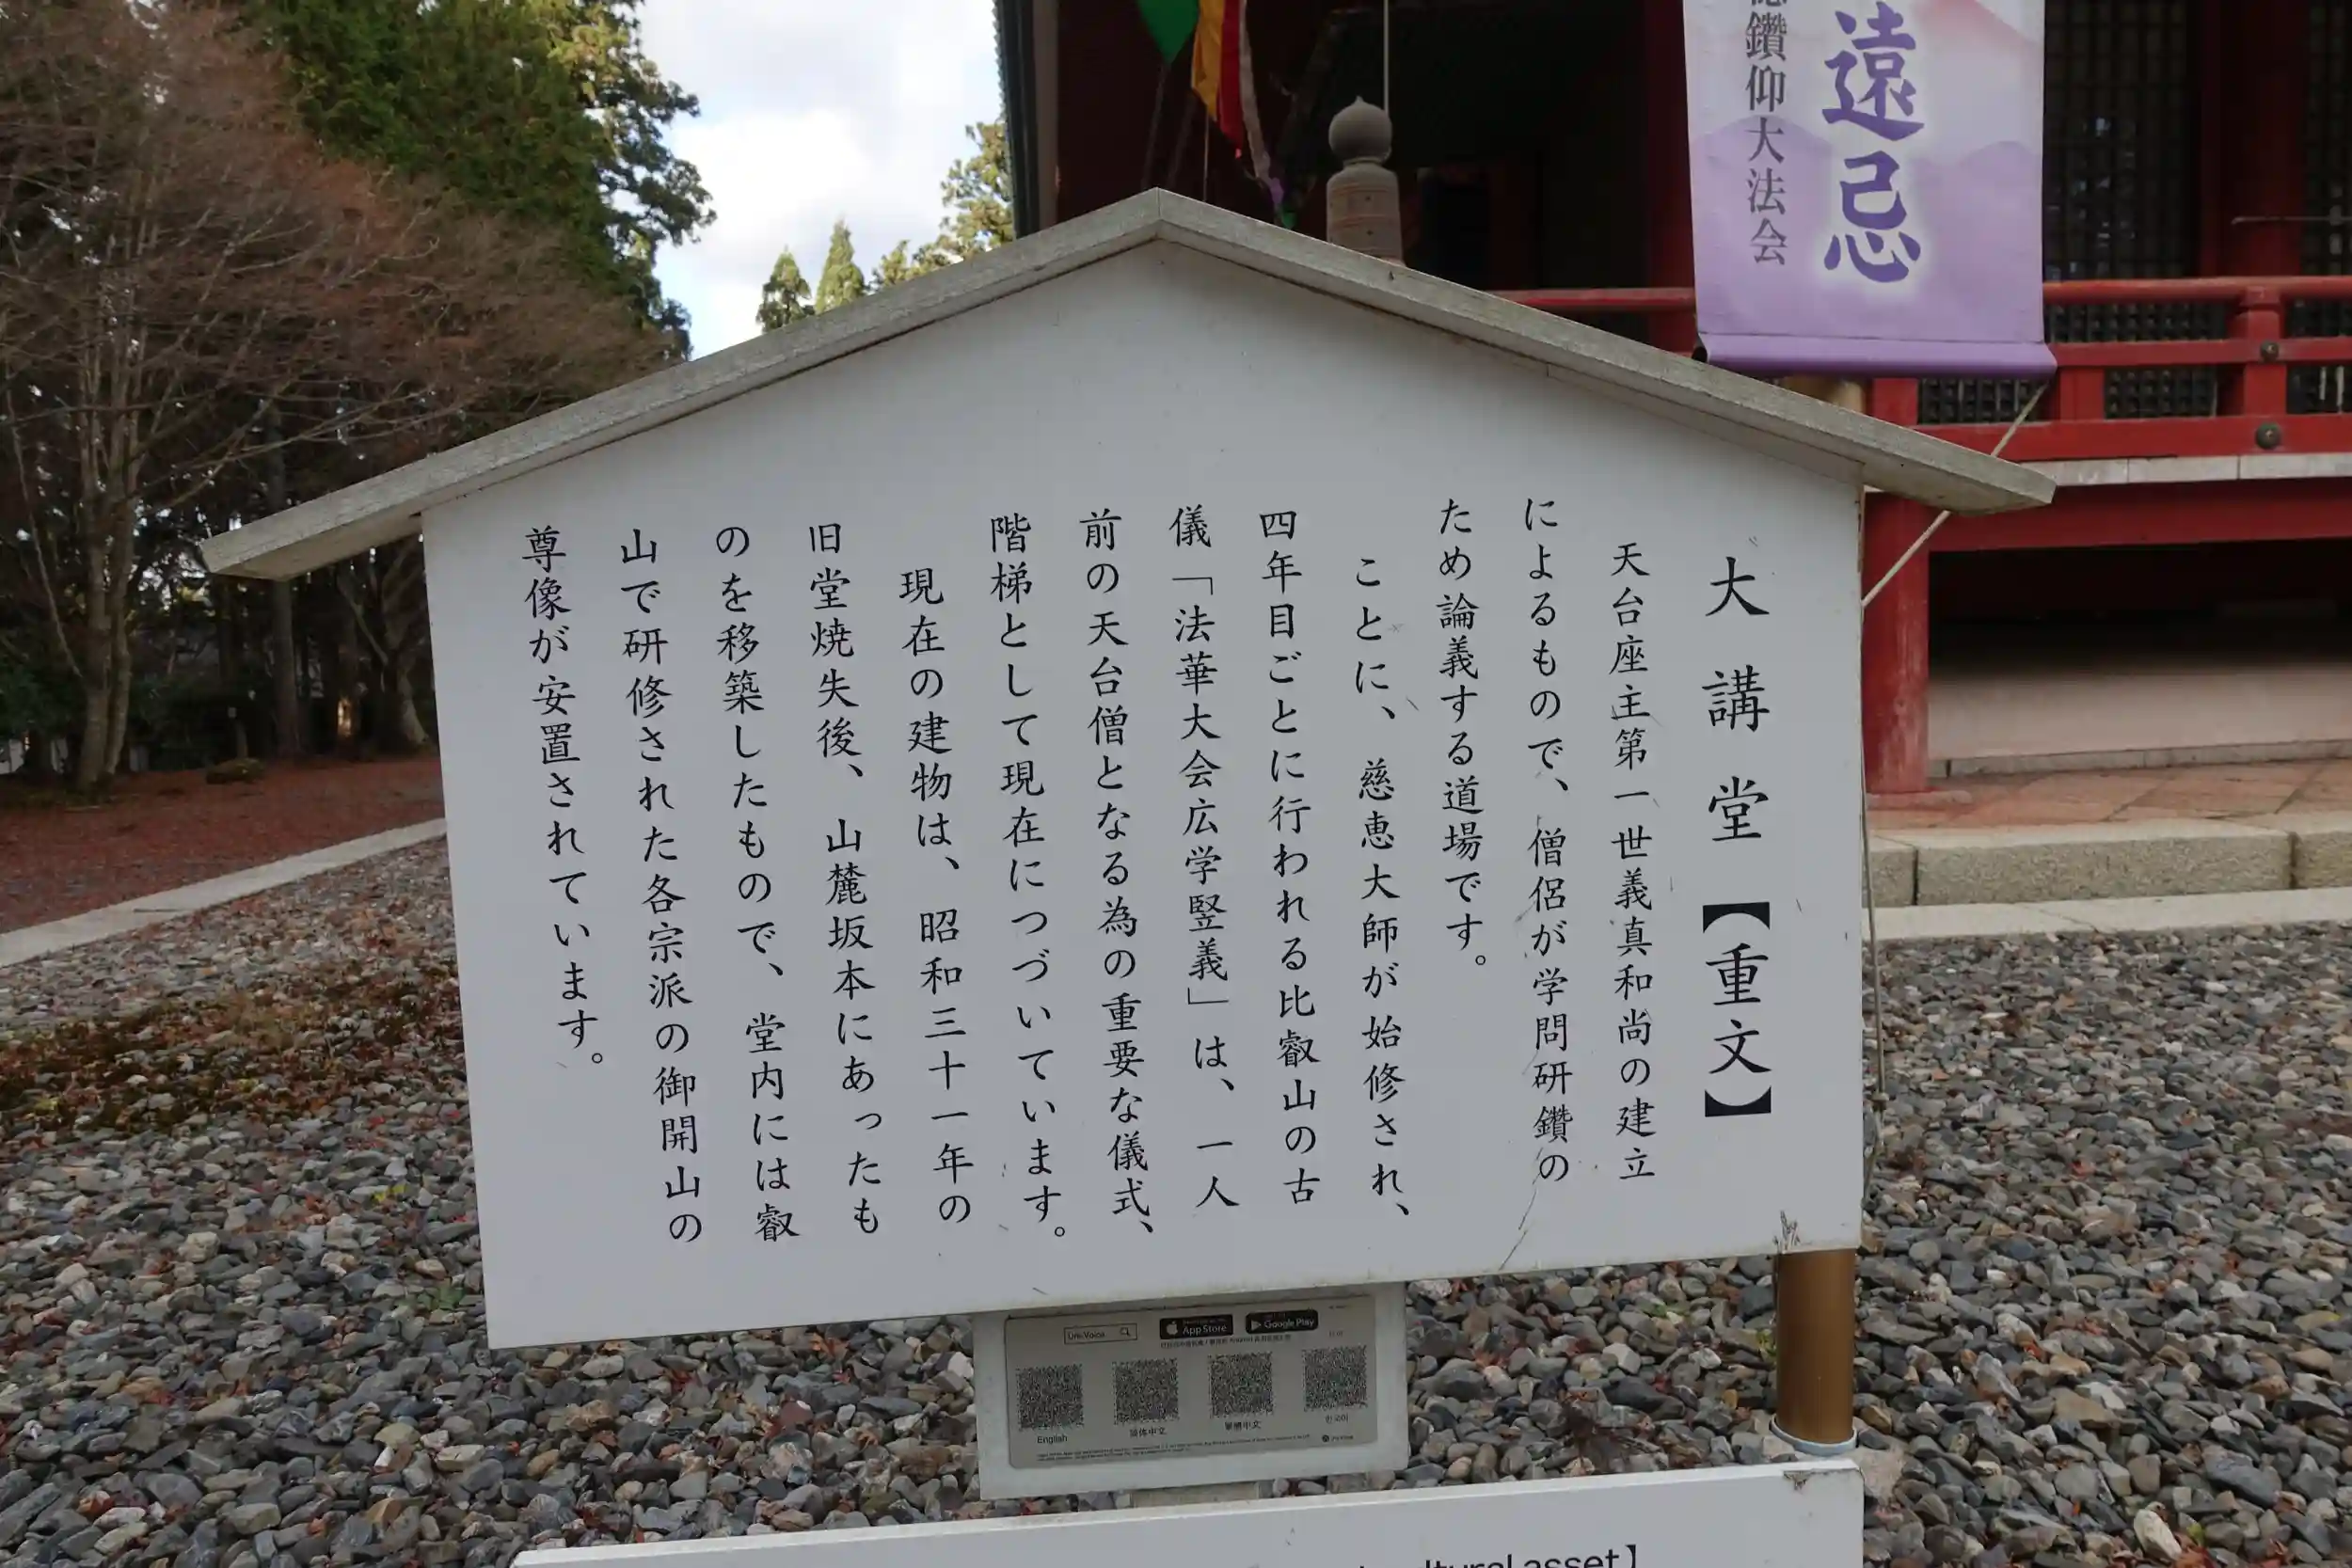 大講堂【重文】
天台座主第一世義真和尚の建立
によるもので、僧侶が学問研鑽の
ため論義する道場です。
ことに、慈恵大師が始修され、
四年目ごとに行われる比叡山の古
儀「法華大会広学竪義」は、一人
前の天台僧となる為の重要な儀式、
階梯として現在につづいています。
現在の建物は、昭和三十一年の
旧堂焼失後、山麓坂本にあったも
のを移築したもので、堂内には叡
山で研修された各宗派の御開山の
尊像が安置されています。
遠忌
鑽仰大法会
Uni-Voice
App Store
Google Play
English
简体中文
繁體中文
한국어
asset】